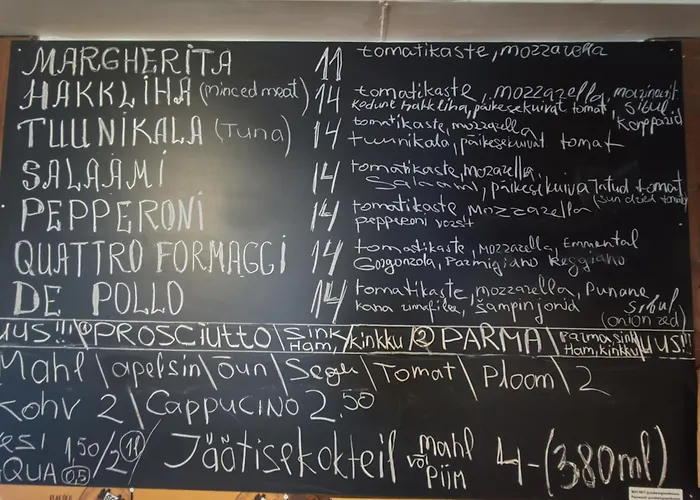 MARGHERITA 11 tomatikaste, mozzarella
HAKKLIHA (minced meat) 14 tomatikaste, mozzarella,
kodune hakkliha, päikesekuivat tomat, sibul,
TUUNIKALA (Tuna) 14 tomatikaste, mozzarella
tuunikala, päikesekuivat tomat
SALAAMI 14 tomatikaste, mozarella,
Salaami, päikesekuivatatud tomat
(sun dried tomato)
PEPPERONI 14 tomatikaste, mozzarella
pepperoni vorst
QUATTRO FORMAGGI 14 tomatikaste, mozzarella, Emmental
Gorgonzola, Parmigiano Reggiano
DE POLLO 14 tomatikaste, mozzarella, Punane
kana šampinjonid sibul
(onion red)
UUS!!! ① PROSCIUTTO \ Sink/kinkku
Ham, ② PARMA \ Parma sink UUS!!
Ham, kinkku
Mahl \ apelsin \ õun \ Segu \ Tomat \ Ploom \ 2
Kohv 2 / CAPPUCINO 2.50
esi 1,50/2 (1l)
QUA (0,5) Jäätisekokteil mahl
või
piim 4-(380ml)